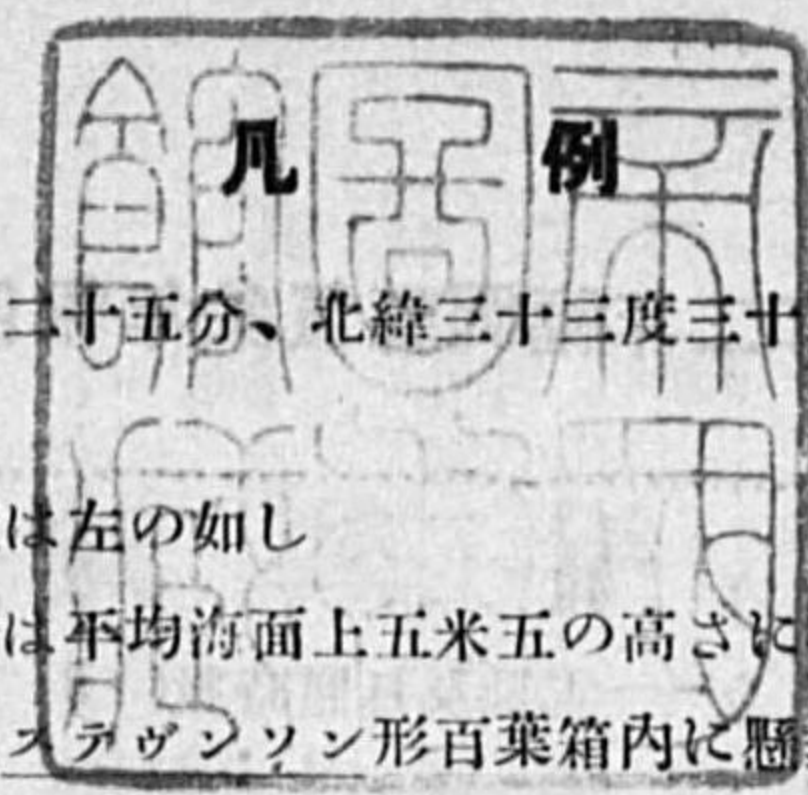 凡例
二十五分、北緯三十三度三十
は左の如し
は平均海面上五米五の高さに
ステヴンソン形百葉箱内に懸